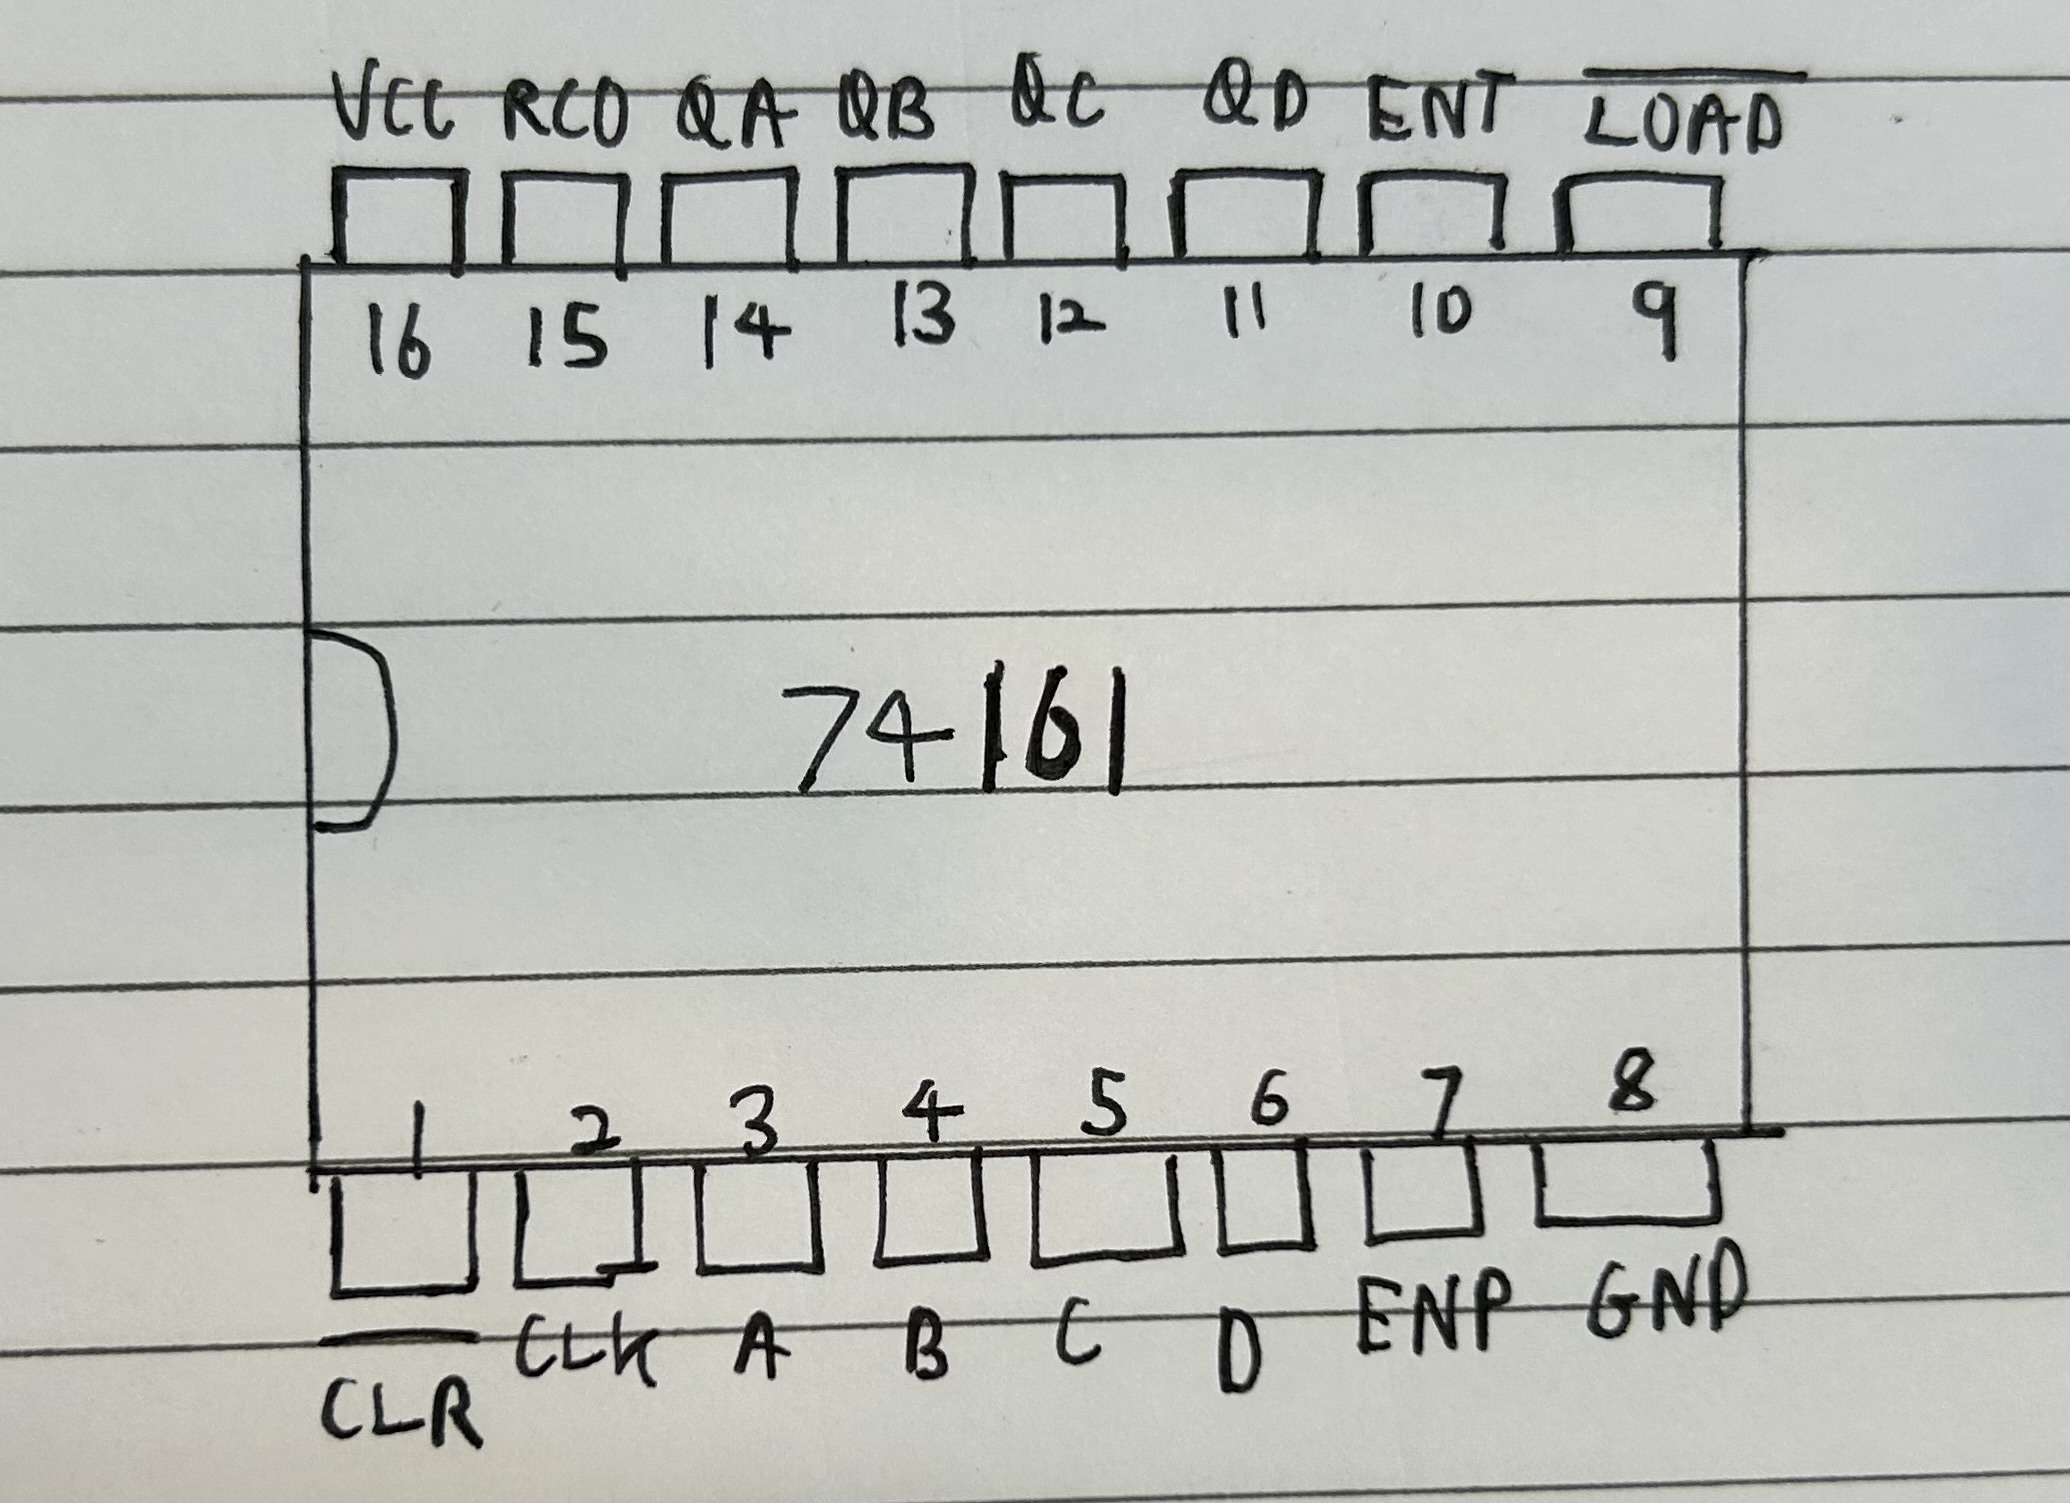 VCC RCO QA QB QC QD ENT LOAD
16 15 14 13 12 11 10 9
74161
1 2 3 4 5 6 7 8
CLR CLK A B C D ENP GND